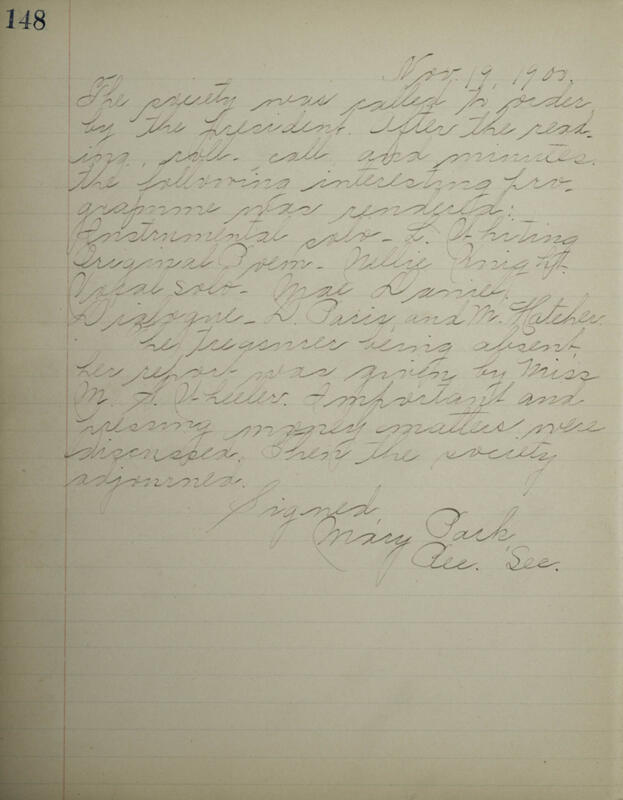 148
Nov. 19, 1901.
The society was called to order
by the president. After the read-
ing, roll-call and minutes.
the following interesting pro-
gramme was rendered:
Instrumental solo - L. Whiting
Original Poem - Nellie Knight.
Vocal Solo - Mae Daniel.
Dialogue - D. Paris, and M. Hatcher.
The treasurer being absent,
her report was given by Miss
M. A. Wheeler. Important and
pressing money matters were
discussed. Then the society
adjourned.
Signed,
Mary Park
Rec. Sec.